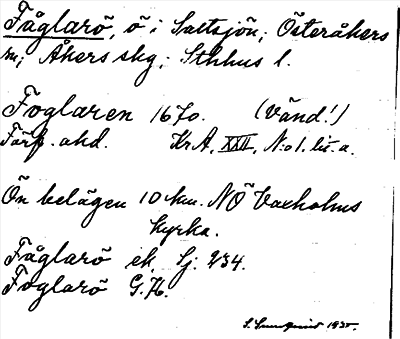 Fåglarö, ö i Saltsjön; Österåkers
sn; Åkers skg; Sthlms l.
Foglaren 1670. (Vänd!)
Förf. ahd. KrA, XXII, N:o 1. lit. a.
Ön belägen 10 km. NÖ Vaxholms
kyrka.
Fåglarö ek. Sj. 234.
Foglarö G.K.
S. 1935.